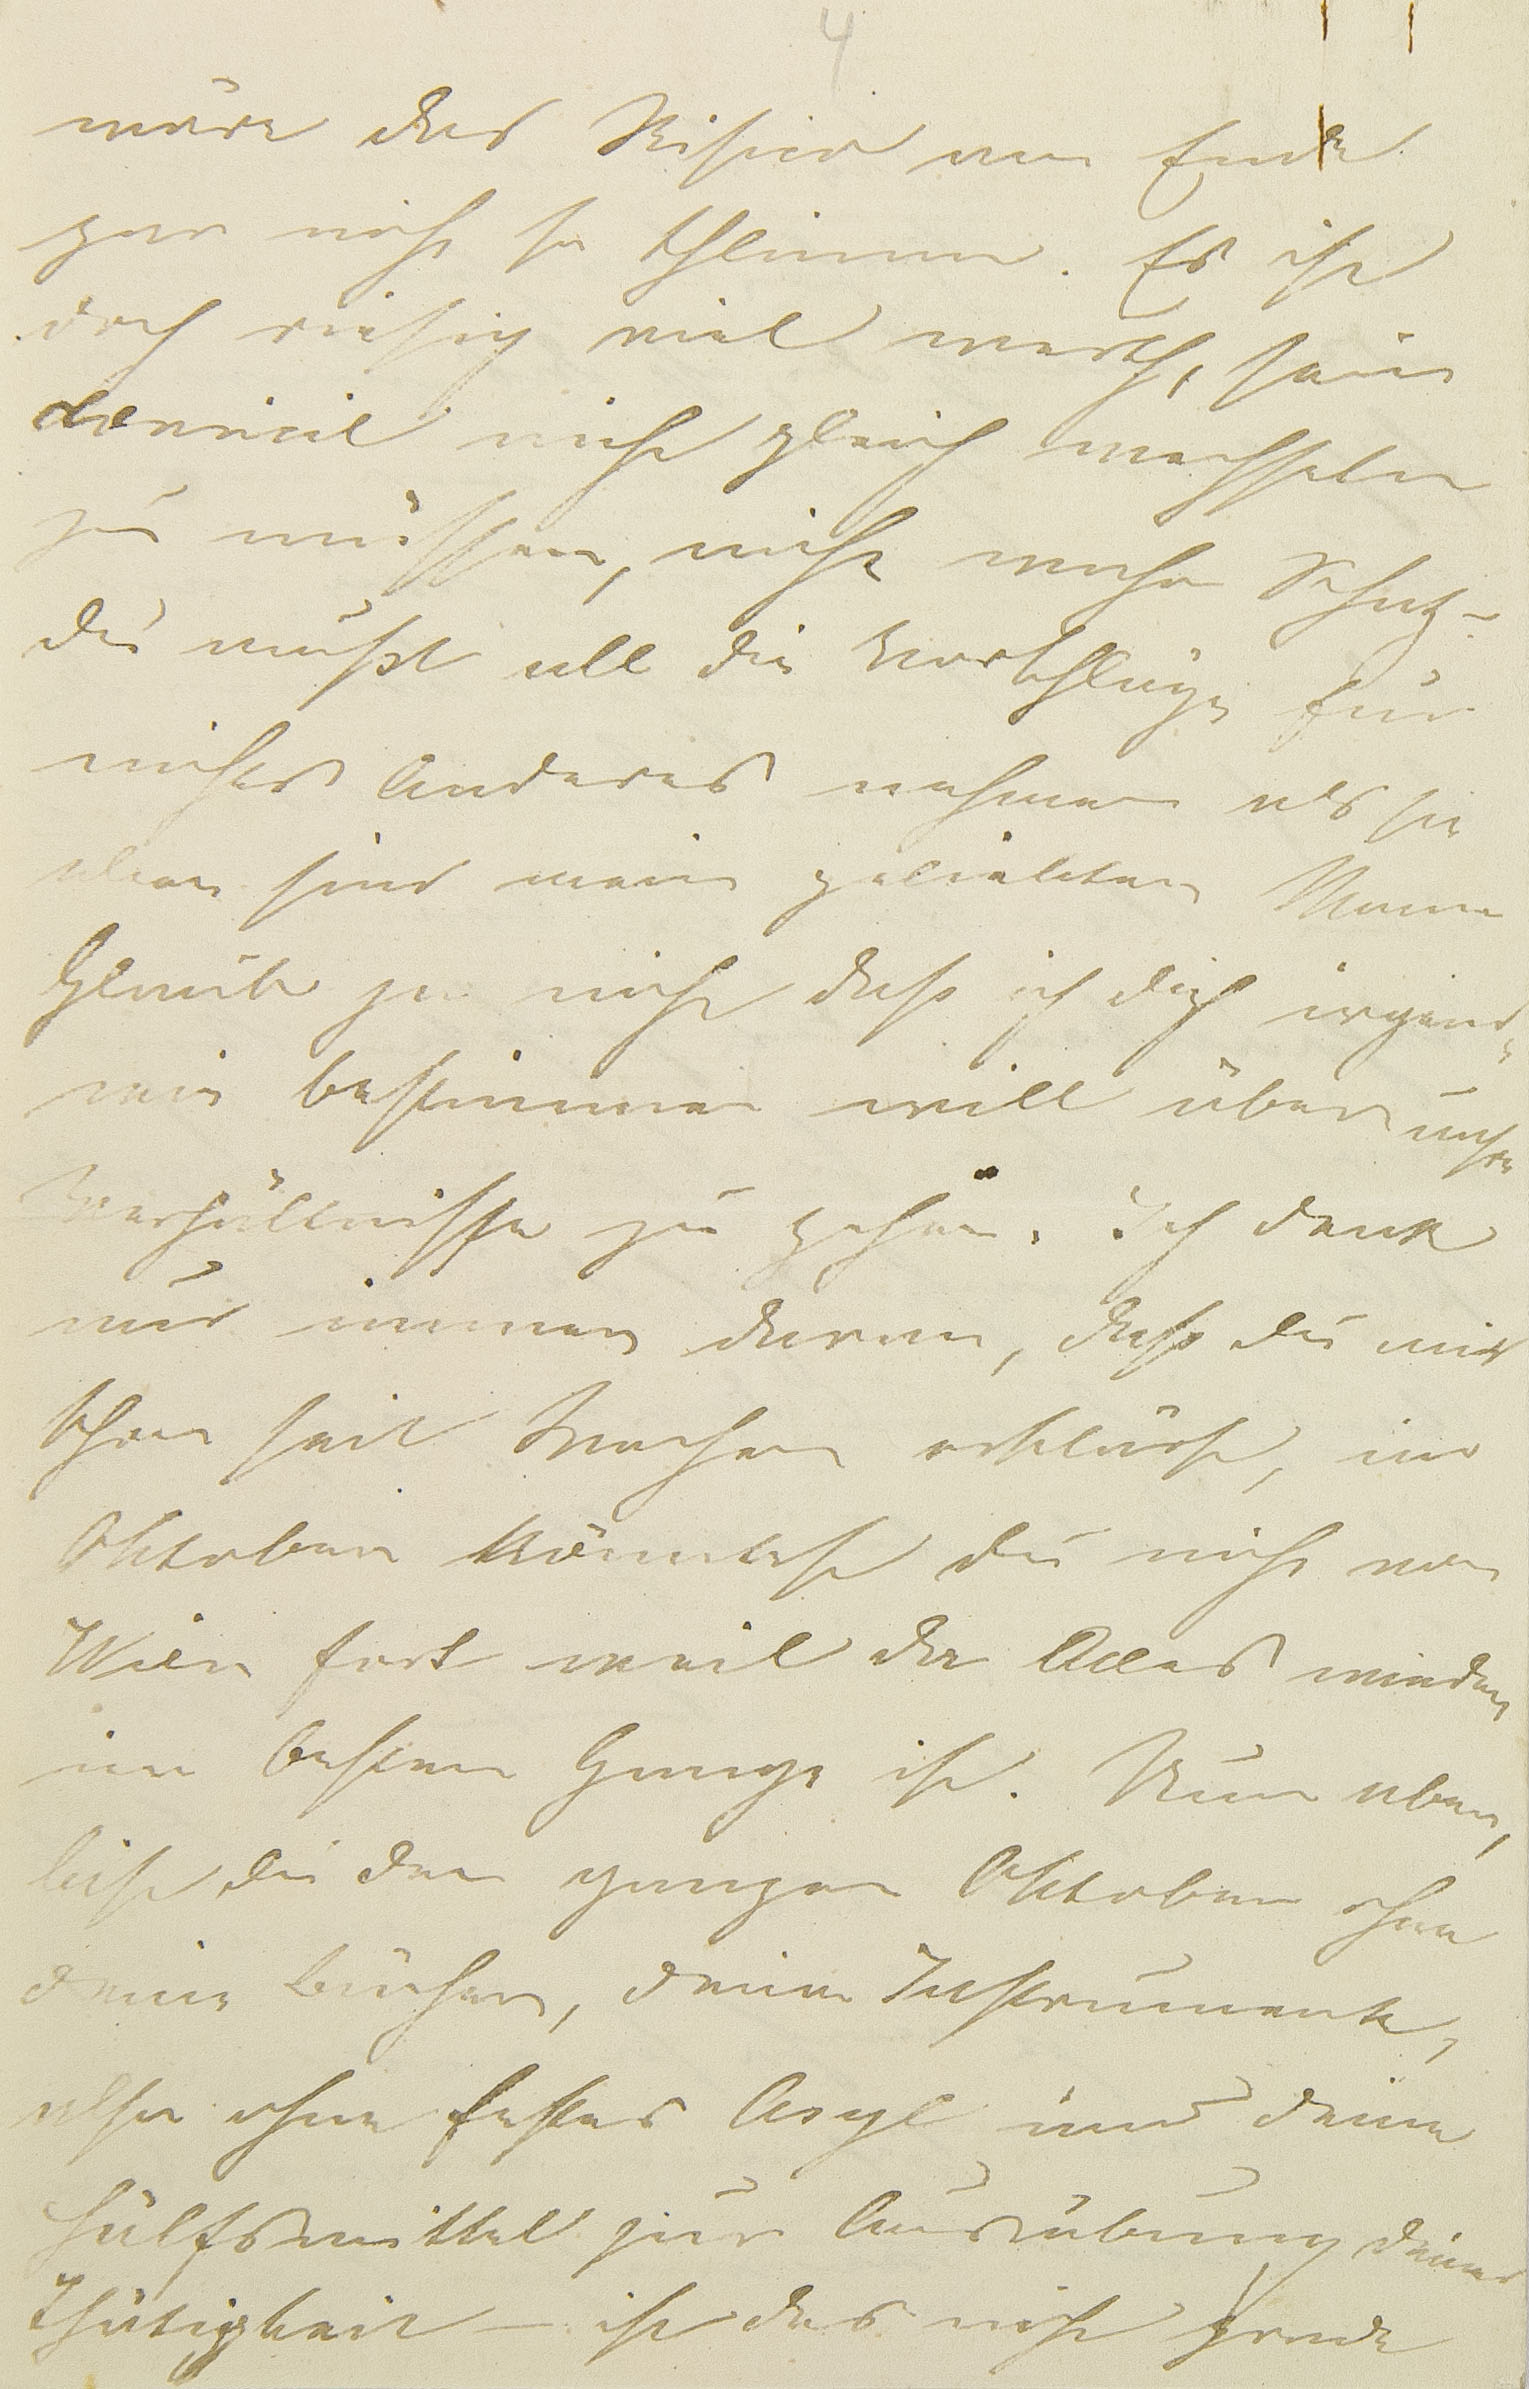 4
wäre das Risico am Ende
gar nicht so schlimm. Es ist
doch riesig viel werth, sein
Domicil nicht gleich wechseln
zu müssen, nicht wahr Schatz –
Du mußt all die Vorschläge für
nichts Anderes nehmen als sie
eben sind mein geliebter Mann
Glaube ja nicht daß ich dich irgend„
wie bestimmen will über unsre
Verhältnisse zu gehen. Ich denke
nur immer daran, daß du mir
schon seit Wochen erklärst, im
Oktober könntest du nicht von
Wien fort weil da Alles wieder
im besten Gange ist. Nun aber,
bist du den ganzen Oktober ohne
deine Bücher, deine Instrumente,
also ohne festes Asyl und deine
Hülfsmittel zur Ausübung deiner
Thätigkeit – ist das nicht grade